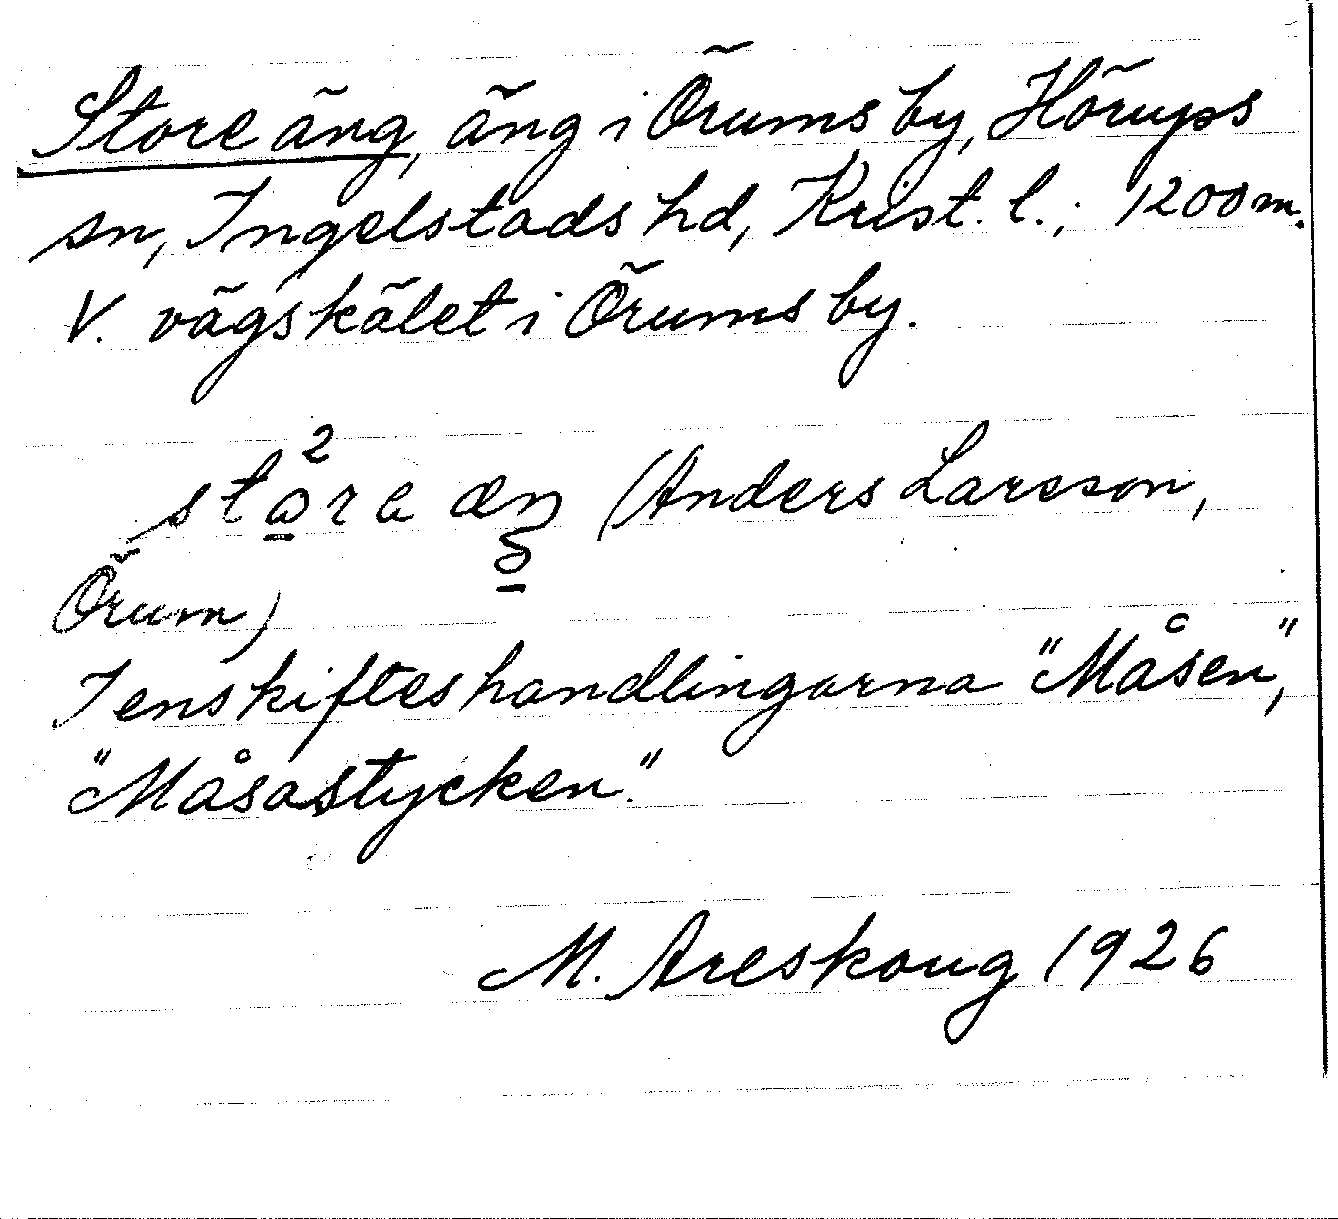 Store äng, äng i Örums by, Hörups
sn, Ingelstads hd, Krist. l.; 1200 m.
V. vägskälet i Örums by.
2
stårə æŋ (Anders Larsson,
Örum)
I enskifteshandlingarna "Måsen",
"Måsastycken".
M. Areskoug 1926